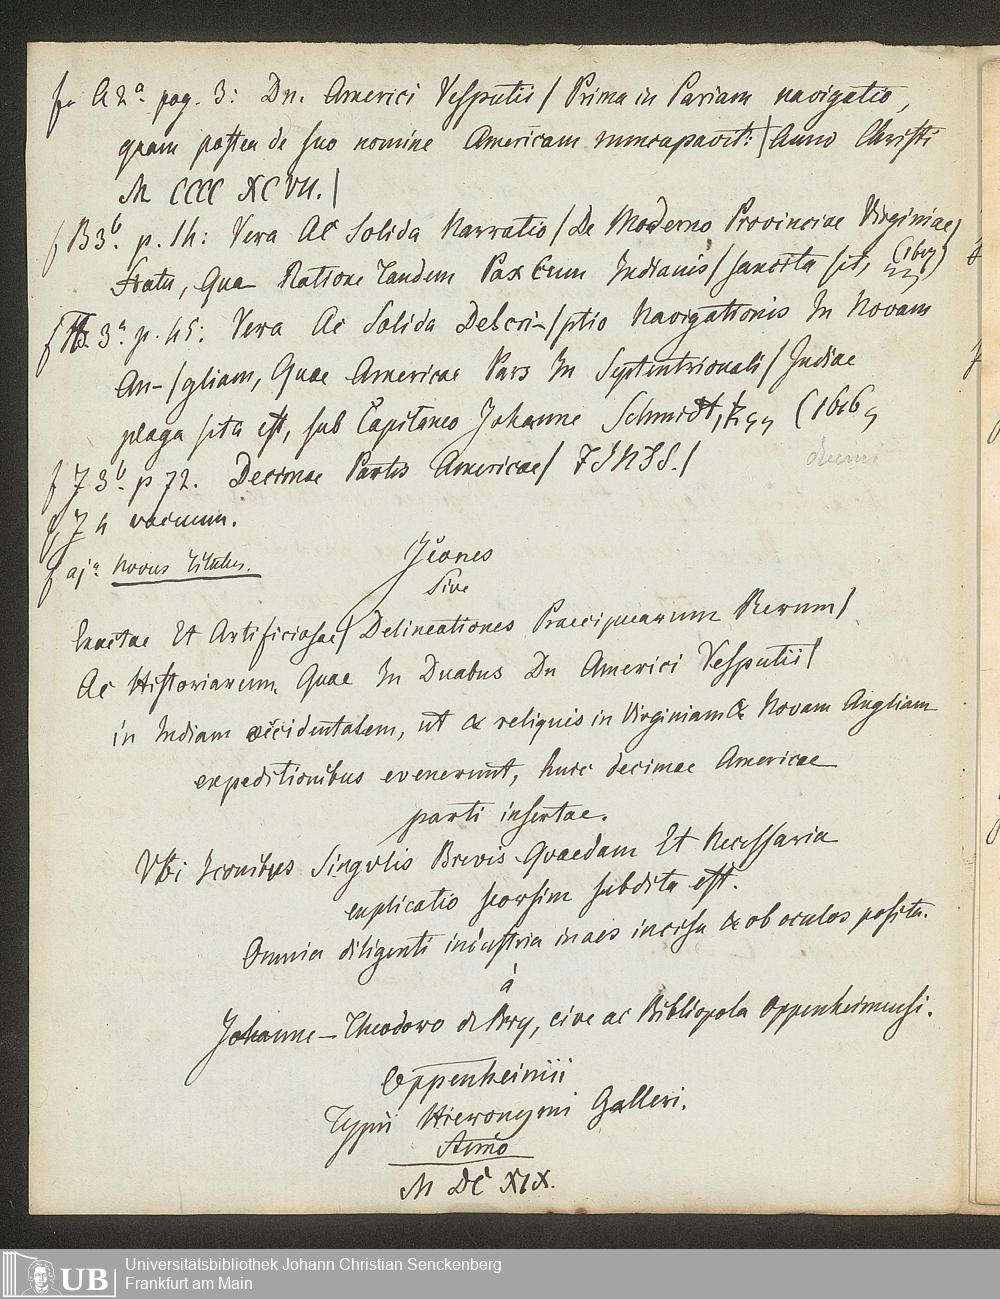 f. A2ª. pag. 3: Dn. Americi Vesputii/ Prima in Pariam navigatio,
quam postea de suo nomine Americam nuncupavit:/ Anno Christi
M CCCC XCVII./
f B3ᵇ. p. 14: Vera Ac Solida Narratio/ De Moderno Provinciae Virginiae/
Statu, Qua Ratione Tandem Pax Cum Indianis/ sancita sit,
3ª p. 45: Vera Ac Solida Descri-/ptio Navigationis In Novam
An-/gliam, Quae Americae Pars In Septentrionali/ Indiae
plaga sita est, sub Capitaneo Johanne Schmidt, (1616,
f J 3ᵇ. p 72. Decimae Partis Americae/ FINIS./
f J 4 vacuum.
f ajª Novus Titulus. Icones
Sive
Exactae Et Artificiosae/ Delineationes Praecipuarum Rerum/
Ac Historiarum, Quae In Duabus Dn Americi Vesputii/
in Indiam occidentalem, ut & reliquis in Virginiam & Novam Angliam
expeditionibus evenerunt, huic decimae Americae
parti insertae.
Vbi Iconibus Singvlis Brevis Qvaedam Et Necessaria
explicatio seorsim subdita est.
Omnia diligenti industria in aes incisa & ob oculos posita.
á
Johanne-Theodoro de Bry, cive ac Bibliopola Oppenheimensi.
Oppenheimii
Typis Hieronymi Galleri.
Anno
M DC XIX.
UB
Universitätsbibliothek Johann Christian Senckenberg
Frankfurt am Main